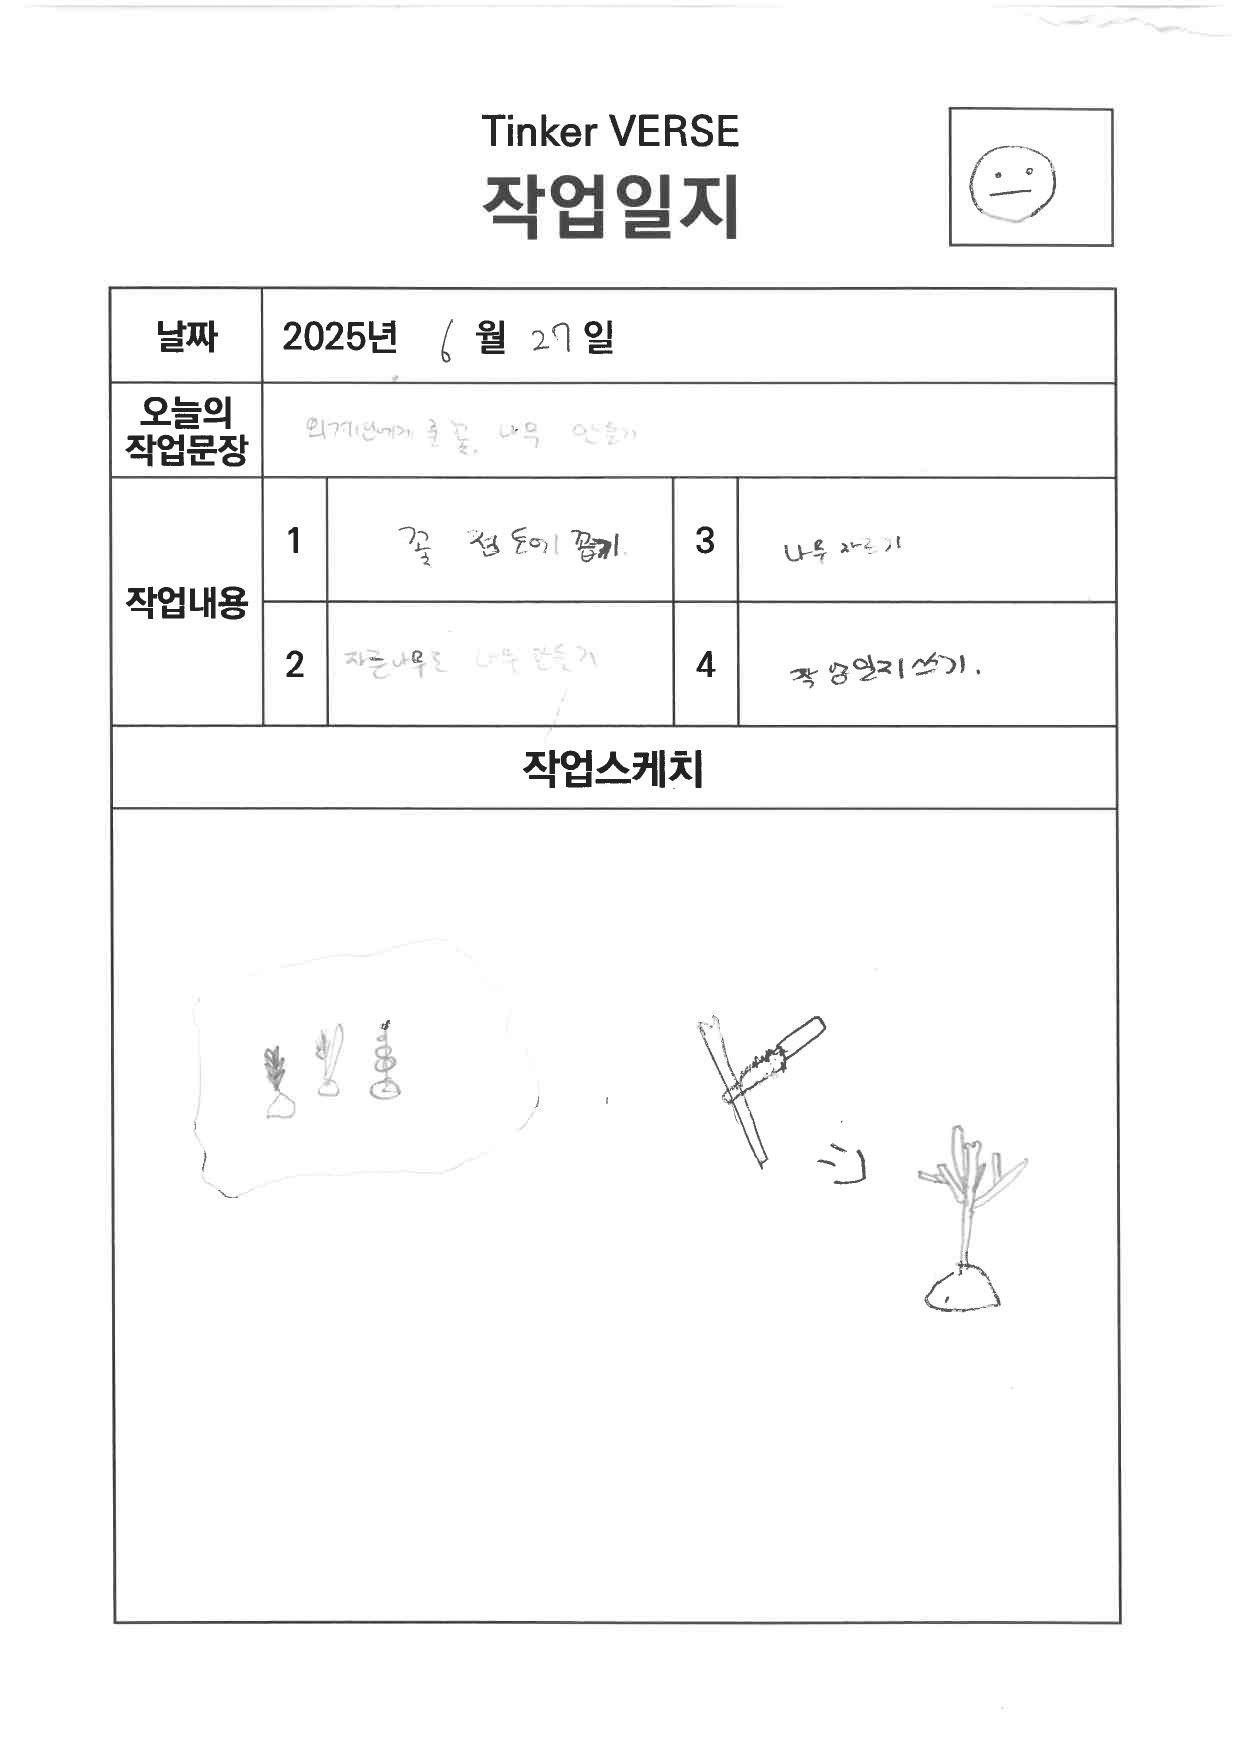 Tinker VERSE
작업일지
날짜
2025년 6월 27일
오늘의
작업문장
외계인에게 줄 꽃, 나무 만들기
작업내용
1
꽃 점토에 꼽기.
3
나무 자르기
2
자른나무로 나무 만들기
4
작업일지쓰기.
작업스케치